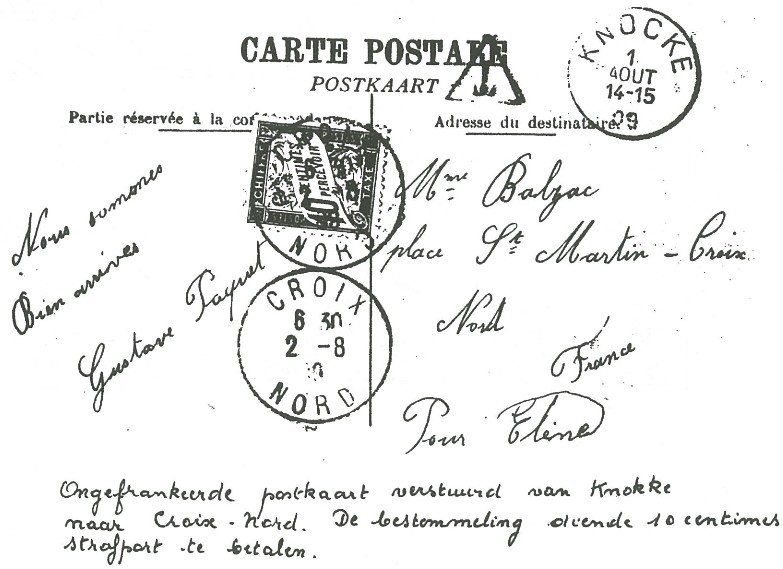 CARTE POSTALE
POSTKAART
T
KNOCKE
1
AOUT
14-15
09
Partie réservée à la
Adresse du destinataire
CHIFFRE TAXE
CENTIMES
PERCEVOIR
10
NOR
Mme Balzac
place St Martin - Croix
Nord
France
Pour Eline
Nous sommes
Bien arrivés
Gustave Paquet
CROIX
6 30
2 -8
NORD
Ongefrankeerde postkaart verstuurd van Knokke
naar Croix-Nord. De bestemmeling diende 10 centimes
strafport te betalen.